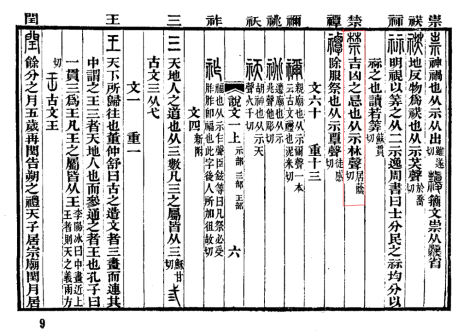 祟 祅 祘 禁 禫 禰 祧 祆 祚 三 王 閏
祟 神禍也从示从出 雖遂切 籒文祟从省
祅 地反物爲祅也从示芺聲 於喬切
祘 明視以筭之从二示逸周書曰士分民之祘均分以
祘之也讀若筭 蘇貫切
禁 吉凶之忌也从示林聲 居蔭切
禫 除服祭也从示覃聲 徒感切
文六十 重十三
禰 親廟也从示爾聲一本云古文禮也泥米切
祧 遷廟也从示兆聲他彫切
祆 胡神也从示天聲火千切
說文一上 示部 三部 王部 六
祚 福也从示乍聲臣鉉等曰凡祭必受胙胙即福也此字後人所加徂故切
文四 新附
三 天地人之道也从三數凡三之屬皆从三 穌甘切
弎 古文三从弋
文一 重一
王 天下所歸往也董仲舒曰古之造文者三畫而連其
中謂之王三者天地人也而參通之者王也孔子曰
一貫三爲王凡王之屬皆从王 李陽冰曰中畫近上王者則天之義雨方切
古文王
閏 餘分之月五歲再閏告朔之禮天子居宗廟閏月居
9